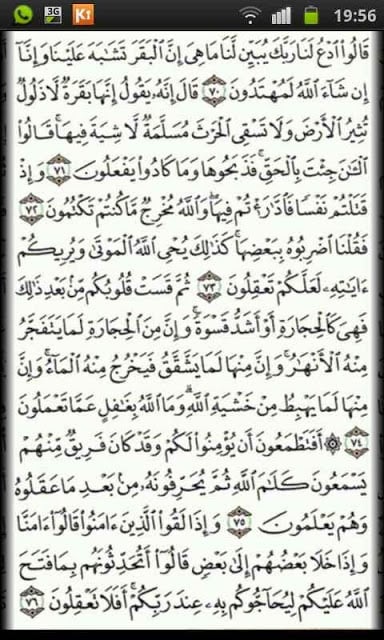 3G
K1
19:56
قَالُوا۟ ٱدْعُ لَنَا رَبَّكَ يُبَيِّن لَّنَا مَا هِىَ إِنَّ ٱلْبَقَرَ تَشَٰبَهَ عَلَيْنَا وَإِنَّآ
إِن شَآءَ ٱللَّهُ لَمُهْتَدُونَ ٧٠ قَالَ إِنَّهُۥ يَقُولُ إِنَّهَا بَقَرَةٌ لَّا ذَلُولٌ
تُثِيرُ ٱلْأَرْضَ وَلَا تَسْقِى ٱلْحَرْثَ مُسَلَّمَةٌ لَّا شِيَةَ فِيهَا ۚ قَالُوا۟
ٱلْـَٰٔنَ جِئْتَ بِٱلْحَقِّ ۚ فَذَبَحُوهَا وَمَا كَادُوا۟ يَفْعَلُونَ ٧١ وَإِذْ
قَتَلْتُمْ نَفْسًا فَٱدَّٰرَْٰٔتُمْ فِيهَا ۖ وَٱللَّهُ مُخْرِجٌ مَّا كُنتُمْ تَكْتُمُونَ ٧٢
فَقُلْنَا ٱضْرِبُوهُ بِبَعْضِهَا ۚ كَذَٰلِكَ يُحْىِ ٱللَّهُ ٱلْمَوْتَىٰ وَيُرِيكُمْ
ءَايَٰتِهِۦ لَعَلَّكُمْ تَعْقِلُونَ ٧٣ ثُمَّ قَسَتْ قُلُوبُكُم مِّنۢ بَعْدِ ذَٰلِكَ
فَهِىَ كَٱلْحِجَارَةِ أَوْ أَشَدُّ قَسْوَةً ۚ وَإِنَّ مِنَ ٱلْحِجَارَةِ لَمَا يَتَفَجَّرُ
مِنْهُ ٱلْأَنْهَٰرُ ۚ وَإِنَّ مِنْهَا لَمَا يَشَّقَّقُ فَيَخْرُجُ مِنْهُ ٱلْمَآءُ ۚ وَإِنَّ
مِنْهَا لَمَا يَهْبِطُ مِنْ خَشْيَةِ ٱللَّهِ ۗ وَمَا ٱللَّهُ بِغَٰفِلٍ عَمَّا تَعْمَلُونَ
٧٤ ۞ أَفَتَطْمَعُونَ أَن يُؤْمِنُوا۟ لَكُمْ وَقَدْ كَانَ فَرِيقٌ مِّنْهُمْ
يَسْمَعُونَ كَلَٰمَ ٱللَّهِ ثُمَّ يُحَرِّفُونَهُۥ مِنۢ بَعْدِ مَا عَقَلُوهُ
وَهُمْ يَعْلَمُونَ ٧٥ وَإِذَا لَقُوا۟ ٱلَّذِينَ ءَامَنُوا۟ قَالُوٓا۟ ءَامَنَّا
وَإِذَا خَلَا بَعْضُهُمْ إِلَىٰ بَعْضٍ قَالُوٓا۟ أَتُحَدِّثُونَهُم بِمَا فَتَحَ
ٱللَّهُ عَلَيْكُمْ لِيُحَآجُّوكُم بِهِۦ عِندَ رَبِّكُمْ ۚ أَفَلَا تَعْقِلُونَ ٧٦